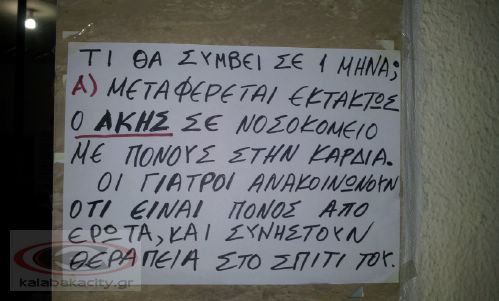 ΤΙ ΘΑ ΣΥΜΒΕΙ ΣΕ 1 ΜΗΝΑ;
Α) ΜΕΤΑΦΕΡΕΤΑΙ ΕΚΤΑΚΤΩΣ
Ο ΑΚΗΣ ΣΕ ΝΟΣΟΚΟΜΕΙΟ
ΜΕ ΠΟΝΟΥΣ ΣΤΗΝ ΚΑΡΔΙΑ.
ΟΙ ΓΙΑΤΡΟΙ ΑΝΑΚΟΙΝΩΝΟΥΝ
ΟΤΙ ΕΙΝΑΙ ΠΟΝΟΣ ΑΠΟ
ΕΡΩΤΑ, ΚΑΙ ΣΥΝΗΣΤΟΥΝ
ΘΕΡΑΠΕΙΑ ΣΤΟ ΣΠΙΤΙ ΤΟΥ.
kalabakacity.gr